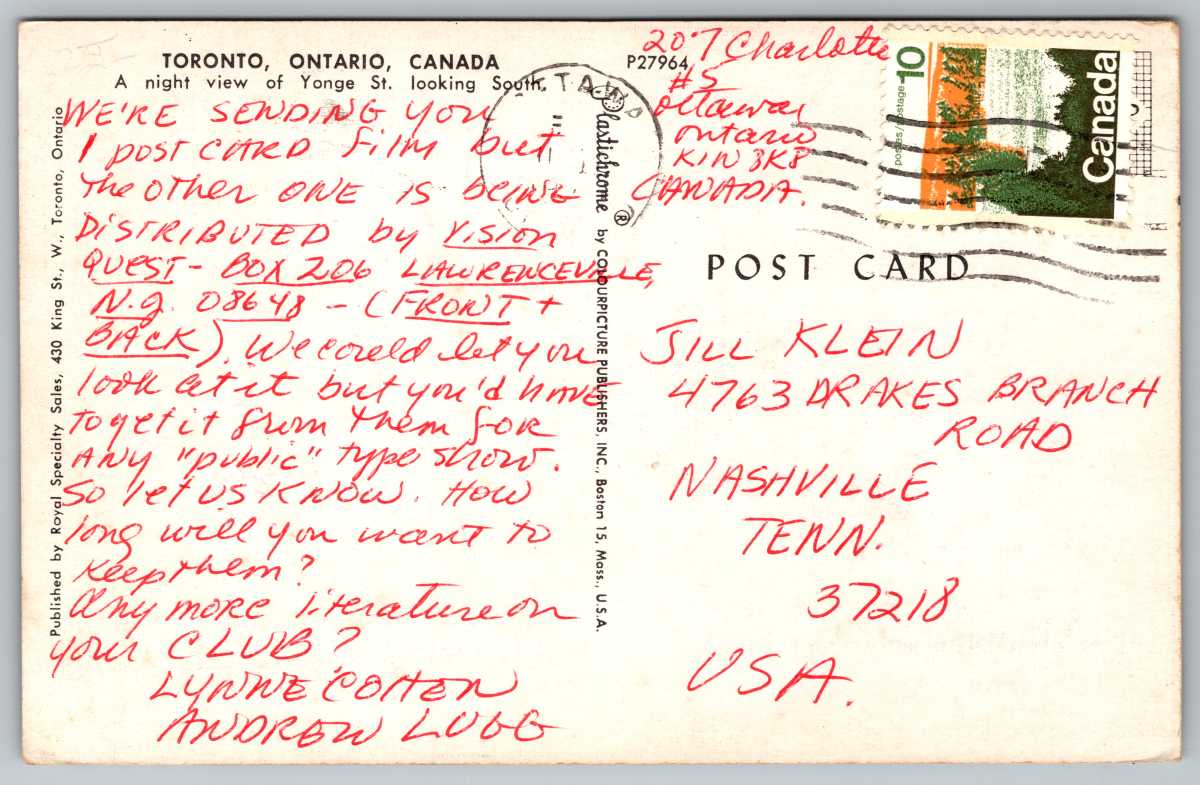 TORONTO, ONTARIO, CANADA
A night view of Yonge St. looking South.
P27964
207 Charlotte
#5
Ottawa
Ontario
K1N 8K8
CANADA.
postes/postage
10
Canada
OTTAWA
WE'RE SENDING YOU
1 post CARD film but
the other ONE is being
DISTRIBUTED by Vision
Quest - BOX 206 LAWRENCEVILLE,
N.J. 08648 - (FRONT +
BACK). We could let you
look at it but you'd have
to get it from them for
any "public" type show.
So let us know. How
long will you want to
keep them?
Any more literature on
your CLUB?
LYNNE COHEN
ANDREW LUGG
Published by Royal Specialty Sales, 430 King St., W., Toronto, Ontario
Plastichrome ® by COLOURPICTURE PUBLISHERS, INC., Boston 15, Mass., U.S.A.
POST CARD
JILL KLEIN
4763 DRAKES BRANCH
ROAD
NASHVILLE
TENN.
37218
USA.